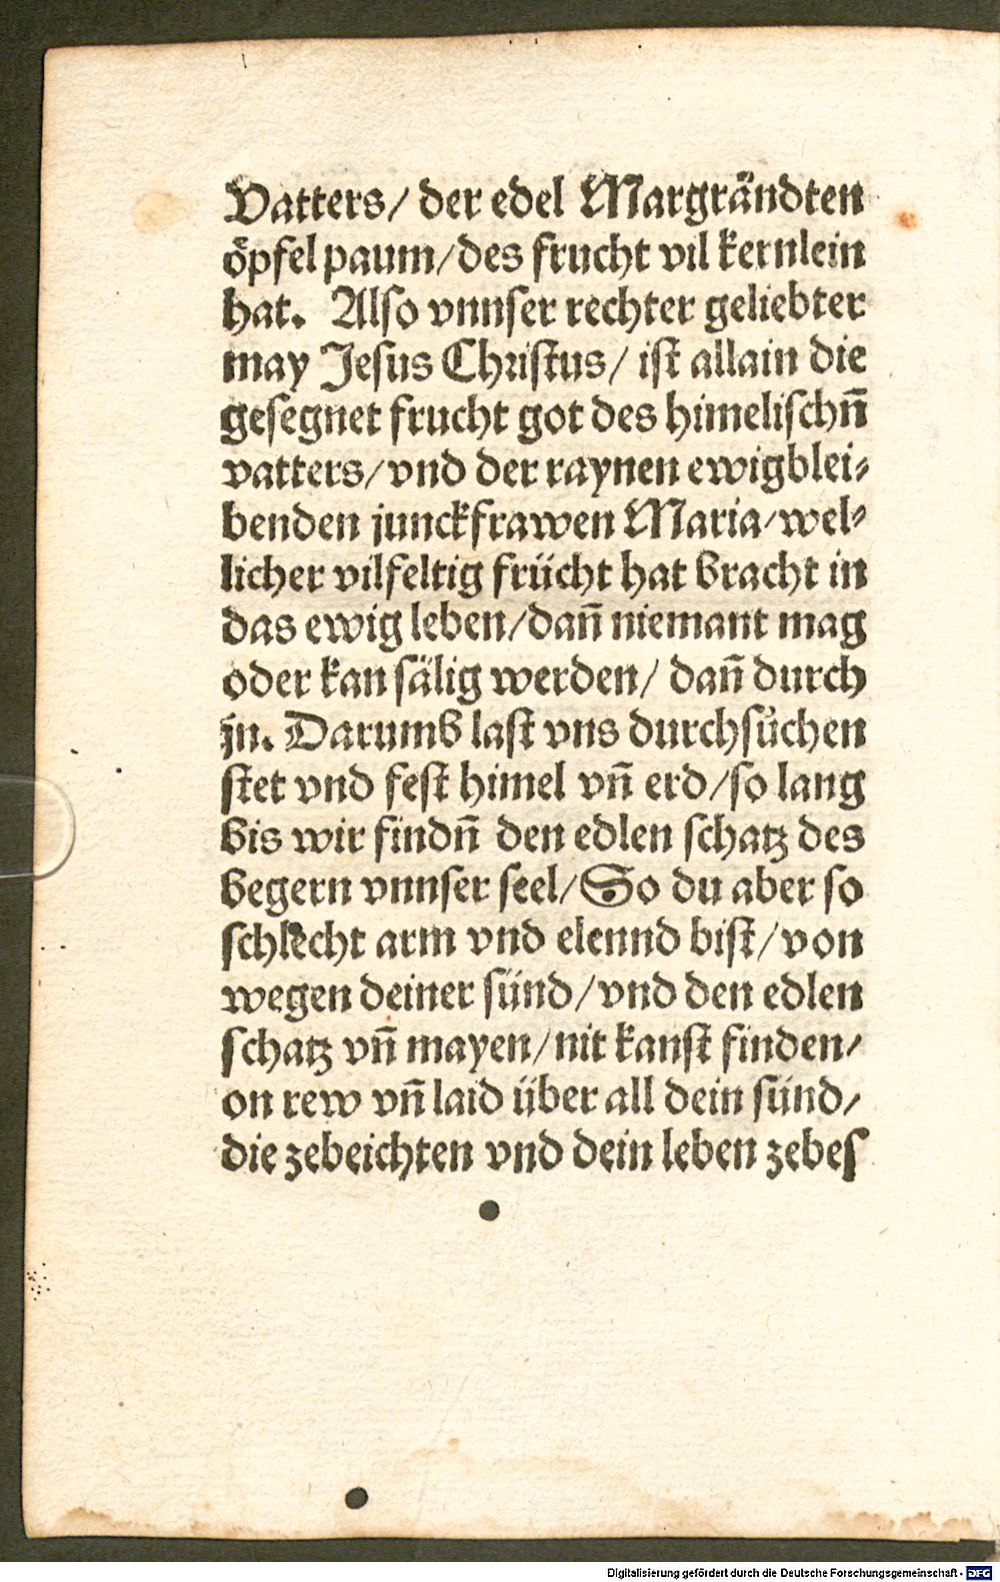 Vatters/ der edel Margrändten
öpfel paum/ des frucht vil kernlein
hat. Also vnnser rechter geliebter
may Jesus Christus/ ist allain die
gesegnet frucht got des himelischñ
vatters/ vnd der raynen ewigblei⸗
benden junckfrawen Maria/ wel⸗
licher vilfeltig frücht hat bracht in
das ewig leben/ dañ niemant mag
oder kan sälig werden/ dañ durch
jn. Darumb last vns durchsůchen
stet vnd fest himel vñ erd/ so lang
bis wir findñ den edlen schatz des
begern vnnser seel/ So du aber so
schlecht arm vnd elennd bist/ von
wegen deiner sünd/ vnd den edlen
schatz vñ mayen/ nit kanst finden/
on rew vñ laid über all dein sünd/
die zebeichten vnd dein leben zebes
Digitalisierung gefördert durch die Deutsche Forschungsgemeinschaft - DFG